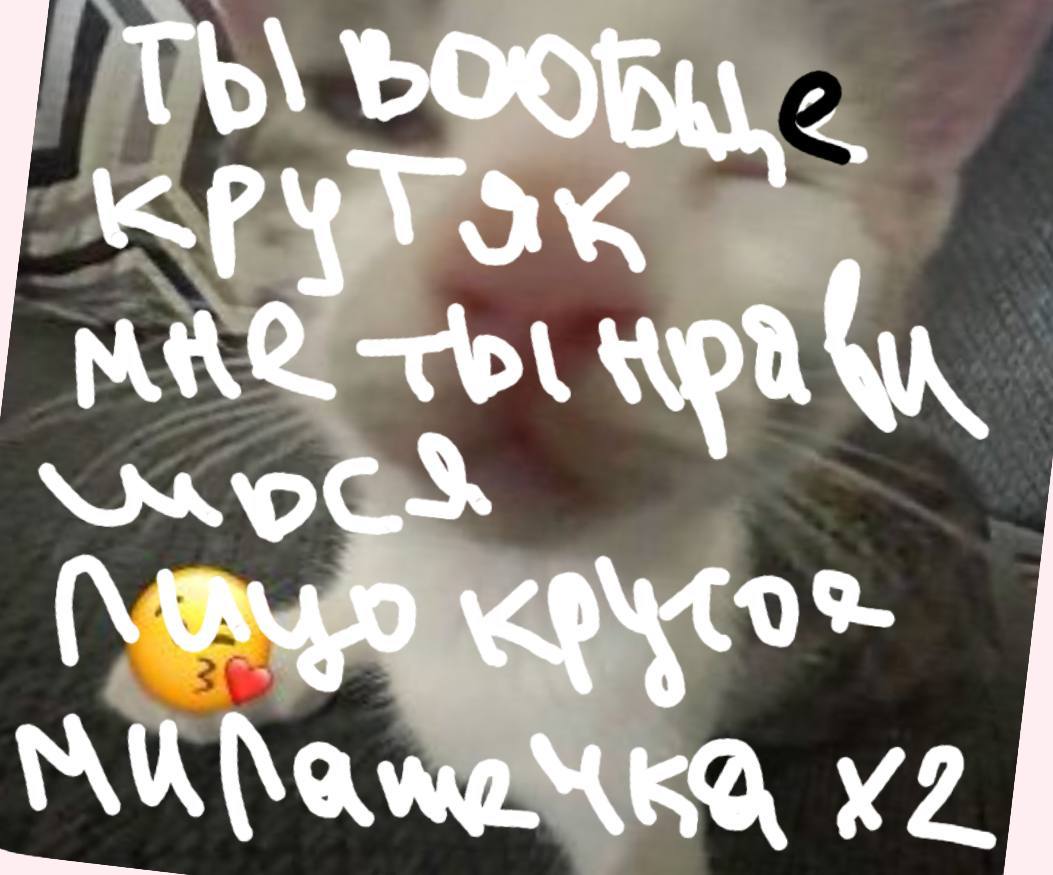 ты вообще
крутяк
мне ты нрави
шься
Лицо крутоя
милашечка х2